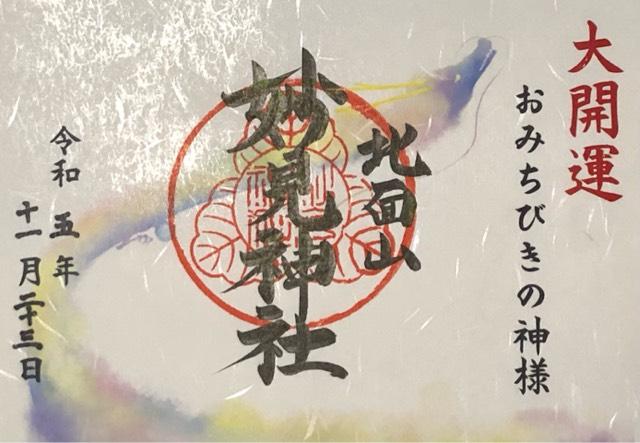 大開運
おみちびきの神様
北面山
妙見神社
令和五年
十一月二十三日